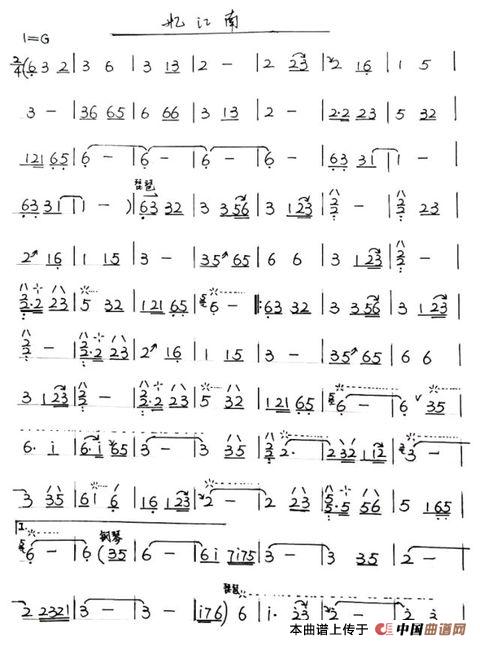 忆江南
1=G
2/4 (6 3 2 | 3 6 | 3 13 | 2 - | 2 23 | 2 16 | 1 5 |
3 - | 36 65 | 6 66 | 3 13 | 2 - | 2·2 23 | 5 32 |
121 65 | 6 - | 6 - | 6 - | 6 - | 63 31 | 1 - |
琵琶
63 31 | 1 - ) | 63 32 | 3 356 | 3 123 | 2/2 - | 2/2 23 |
2 16 | 1 15 | 3 - | 35 65 | 6 6 | 3 123 | 2/2 - |
2/2·2 23 | 5 32 | 121 65 | 6 - |: 63 32 | 3 356 | 3 123 |
2/2 - | 2/2·2 23 | 2 16 | 1 15 | 3 - | 35 65 | 6 6 |
3 123 | 2/2 - | 2/2·2 23 | 5 32 | 121 65 | 6 - | 6 35 |
6· i | 6·i 65 | 3 - | 3 35 | 2/2 2· | 232 112 | 3 - |
3 35 | 6i 6 | 16 123 | 2 - | 2 23 | 5/5·5 56 | 5 165 |
1.
钢琴
6 - | 6 (35 | 6 - | 6i 7i75 | 3 - | 3 35 | 2 - |
琵琶
2 2321 | 3 - | 3 - | i76) 6 | i· 23 | 2 - | 2 2 |
本曲谱上传于 中国曲谱网